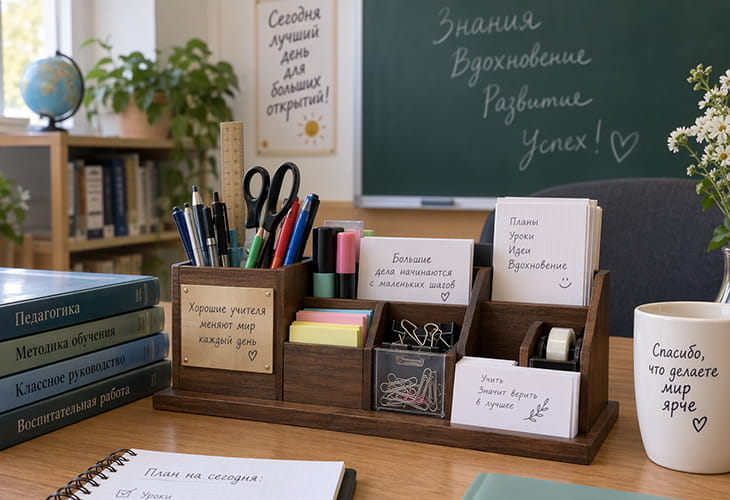 Сегодня
лучший
день
для
больших
открытий!
Знания
Вдохновение
Развитие
Успех!
Планы
Уроки
Идеи
Вдохновение
Большие
дела начинаются
с маленьких шагов
Хорошие учителя
меняют мир
каждый день
Учить
Значит верить
в лучшее
Педагогика
Методика обучения
Классное руководство
Воспитательная работа
Спасибо,
что делаете
мир
ярче
План на сегодня:
Уроки